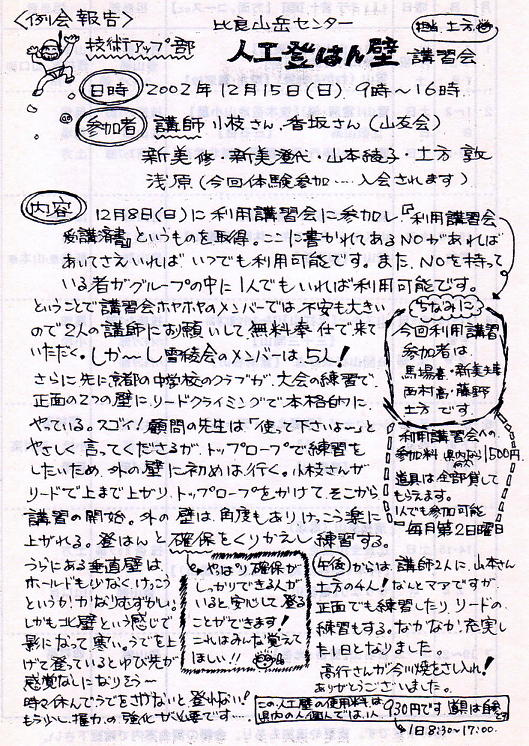 〈例会報告〉
比良山岳センター
担当.土方
技術アップ部
人工登はん壁 講習会
日時 2002年12月15日(日) 9時〜16時
参加者 講師 小枝さん.香坂さん(山友会)
新美 修・新美澄代・山本綾子・土方 敦
浅原(今回体験参加....入会されます)
内容 12月8日(日)に利用講習会に参加し『利用講習会
受講済書』というものを取得。ここに書かれてあるNOがあれば
あいてさえいれば いつでも利用可能です。また、NOを持って
いる者がグループの中に1人でもいれば利用可能です。
ということで講習会ホヤホヤのメンバーでは、不安も大きい
ので2人の講師にお願いして、無料奉仕で来て
いただく。しか〜し雪稜会のメンバーは5人!
さらに先に京都の中学校のクラブが、大会の練習で、
正面の2つの壁にリードクライミングで本格的に
やっている。スゴイ!顧問の先生は「使って下さいよ〜」と
やさしく言ってくださるが、トップロープで練習を
したいため、外の壁に初めは行く。小枝さんが
リードで上まで上がり、トップロープをかけて、そこから
講習の開始。外の壁は、角度もあり、けっこう楽に
上がれる。登はんと確保をくりかえし練習する。
ちなみに
今回利用講習
参加者は
馬場・新美
西村・藤野
土方 です。
利用講習会への
参加料 県内なら1,500円
道具は全部貸して
もらえます。
1人でも参加可能
毎月第2日曜日
うらにある垂直壁は
ホールドも少なく、けっこう
というか、かなりむずかしい。
しかも北壁という感じで
影になって寒い。うでを上
げて登っているとゆび先が
感覚なしになりそう〜
時々休んでうでをさげないと登れない!
もう少し握力の強化が必要です....
やはり確保が
しっかりできる人が
いると安心して登る
ことができます!
これはみんな覚えて
ほしい!!
午後からは、講師2人に、山本さん
土方の4人!なんとママですが、
正面でも練習したり、リードの
練習もする。なかなか充実し
た1日となりました。
高行さんが今川焼をさし入れ!
ありがとうございました。
この人工壁の使用料は
県内の人個人では1人 930円です 道具は自分
1日8:30〜17:00.